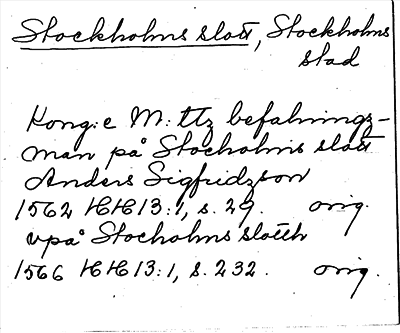 Stockholms slott, Stockholms
stad
Kong:e M:ttz befalnings-
man på Stocholms slott
Anders Sigfridzson
1562 HH13:1, s. 29. orig.
vpå Stocholms slotth
1566 HH13:1, s. 232. orig.